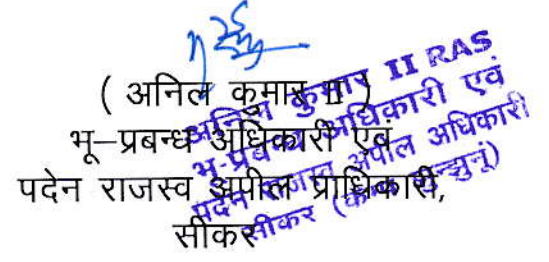 ( अनिल कुमार II )
भू-प्रबन्ध अधिकारी एवं
पदेन राजस्व अपील प्राधिकारी,
सीकर
अनिल कुमार II RAS
भू-प्रबन्ध अधिकारी एवं
पदेन राजस्व अपील अधिकारी
सीकर (कैम्प झुन्झुनूं)